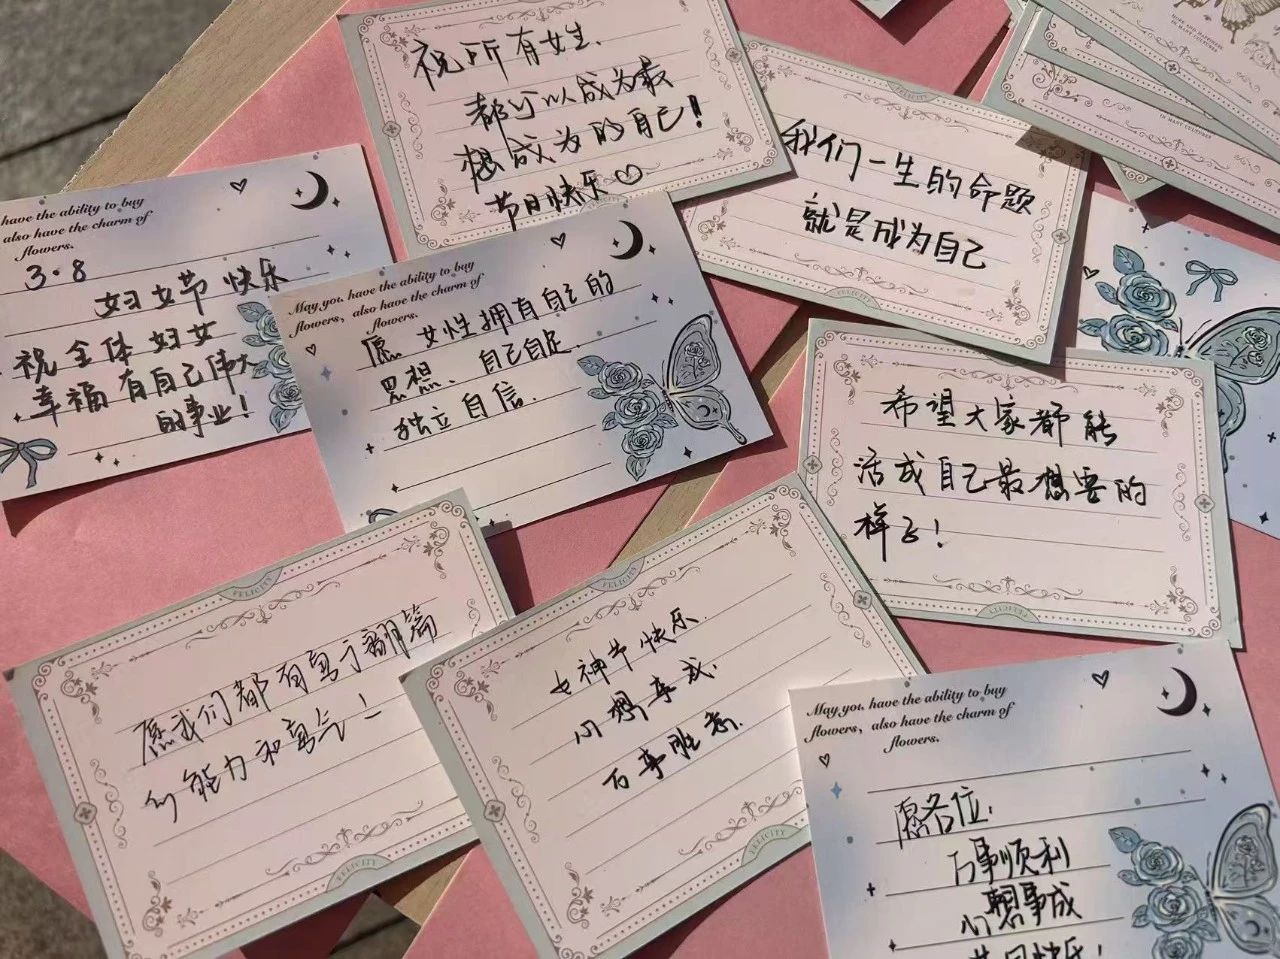 祝所有女生.
都可以成为最
想成为的自己!
节日快乐♡
我们一生的命题
就是成为自己
MANY CULTURES
IN MANY CULTURES
have the ability to buy
also have the charm of
flowers.
3.8
妇女节快乐
祝全体妇女
幸福 有自己伟大
的事业!
May you have the ability to buy
flowers, also have the charm of
flowers.
愿女性拥有自己的
思想、自己自足.
独立自信.
希望大家都能
活成自己最想要的
样子!
FELICITY
FELICITY
愿我们都有写下新篇
的能力和勇气!
FELICITY
FELICITY
女神节快乐.
心想事成.
万事胜意.
FELICITY
FELICITY
May you have the ability to buy
flowers, also have the charm of
flowers.
愿各位.
万事顺利
心想事成
节日快乐!